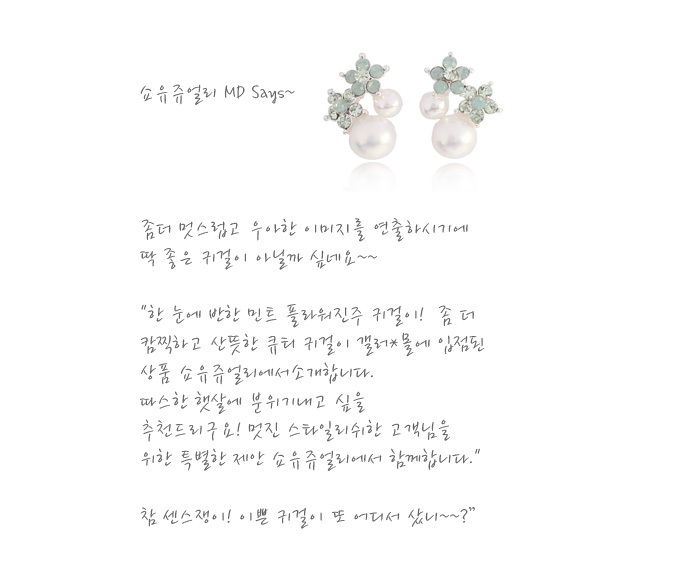 쇼유쥬얼리 MD Says~
좀더 멋스럽고 우아한 이미지를 연출하시기에
딱 좋은 귀걸이 아닐까 싶네요~~
"한 눈에 반한 민트 플라워진주 귀걸이! 좀 더
캄찍하고 산뜻한 큐티 귀걸이 갤러*몰에 입점된
상품 쇼유쥬얼리에서소개합니다.
따스한 햇살에 분위기내고 싶을
추천드리구요! 멋진 스타일리쉬한 고객님을
위한 특별한 제안 쇼유쥬얼리에서 함께합니다."
참 센스쟁이! 이쁜 귀걸이 또 어디서 샀니~~?"